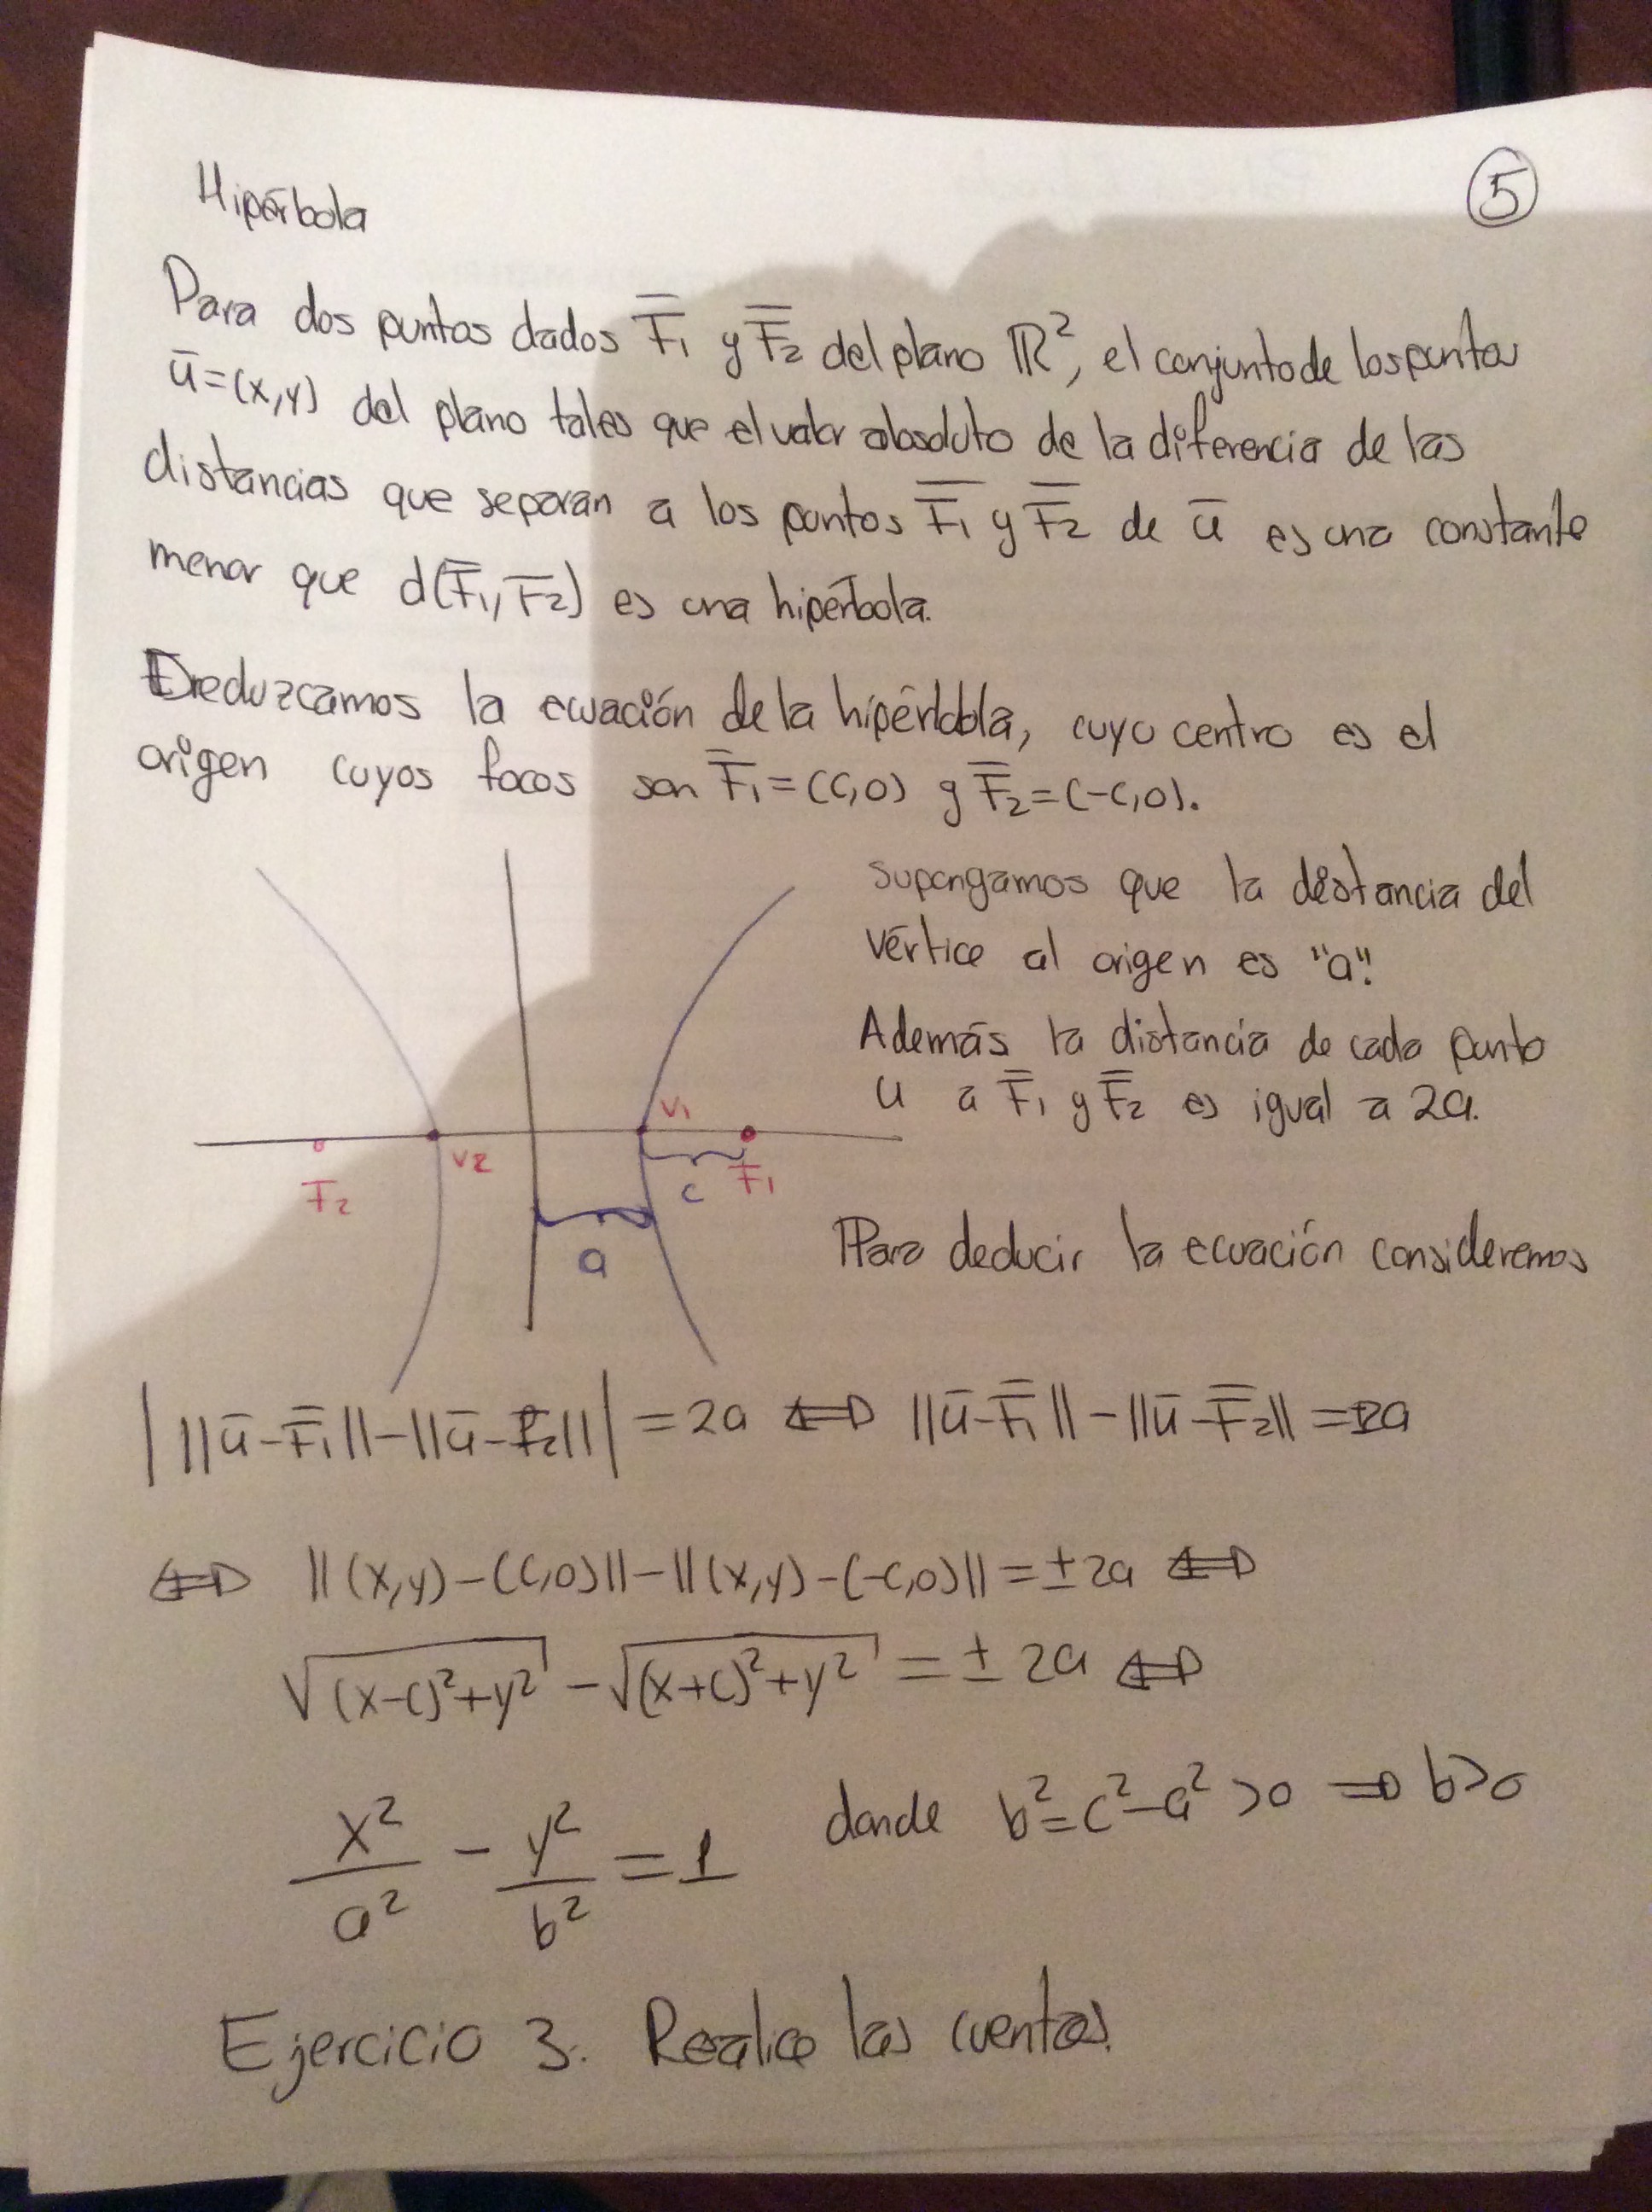 5
Hipérbola
Para dos puntos dados F̅₁ y F̅₂ del plano ℝ², el conjunto de los puntos
ū=(x,y) del plano tales que el valor absoluto de la diferencia de las
distancias que separan a los puntos F̅₁ y F̅₂ de ū es una constante
menor que d(F̅₁, F̅₂) es una hipérbola.
Deduzcamos la ecuación de la hipérbola, cuyo centro es el
origen cuyos focos son F̅₁=(c,0) y F̅₂=(-c,0).
Supongamos que la distancia del
vértice al origen es "a".
Además la distancia de cada punto
u a F̅₁ y F̅₂ es igual a 2a.
V₁
V₂
F₂
c
F₁
a
Para deducir la ecuación consideremos
| ||ū-F̅₁||-||ū-F̅₂|| | = 2a ⟺ ||ū-F̅₁||-||ū-F̅₂|| = ±2a
⟺ ||(x,y)-(c,0)||-||(x,y)-(-c,0)|| = ±2a ⟺
√((x-c)²+y²) - √((x+c)²+y²) = ± 2a ⟺
x²/a² - y²/b² = 1 donde b²=c²-a²>0 ⟹ b>0
Ejercicio 3. Realice las cuentas.